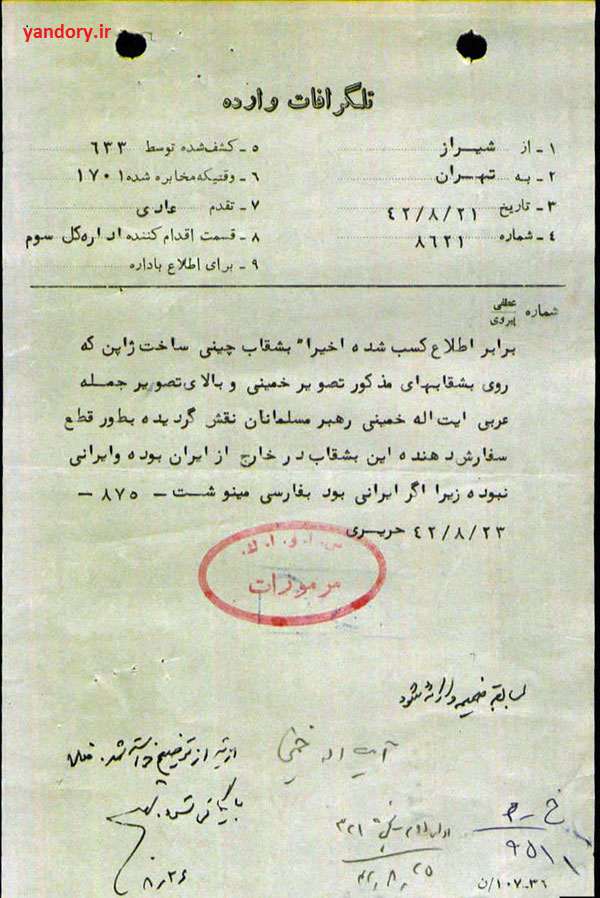 yandory.ir
تلگرافات وارده
۱ـ از شیراز
۲ـ به تهران
۳ـ تاریخ ۴۲/۸/۲۱
۴ـ شماره ۸۶۲۱
۵ـ کشف‌شده توسط ۶۳۳
۶ـ وقتیکه مخابره شده ۱۷۰۱
۷ـ تقدم عادی
۸ـ قسمت اقدام کننده اداره کل سوم
۹ـ برای اطلاع باداره
شماره عطفی پیروی
برابر اطلاع کسب شده اخیرا" بشقاب چینی ساخت ژاپن که
روی بشقابهای مذکور تصویر خمینی و بالای تصویر جمله
عربی ایت اله خمینی رهبر مسلمانان نقش گردیده بطور قطع
سفارش دهنده این بشقاب در خارج از ایران بوده وایرانی
نبوده زیرا اگر ایرانی بود بفارسی مینوشت ـ ۸۷۵ ـ
۴۲/۸/۲۳ حریری
س. ا. و. ا. ک.
مرموزات
بسابقه ضمیمه و ارائه شود
آیت اله خمینی
۹۵۱۱
۳۲۱
۴۲،۸،۲۵
۸،۲۶
۳۶-۱۰۷/ن